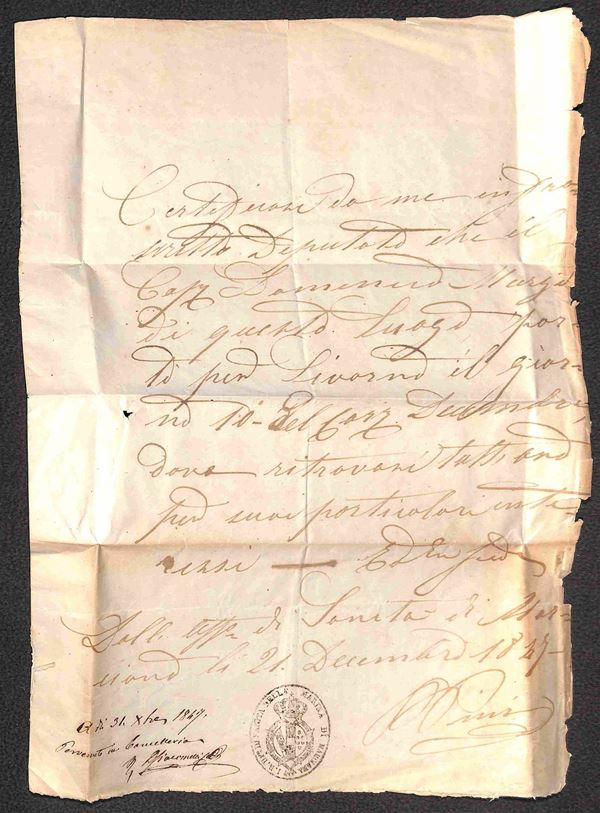 Certificasi da me infra
scritto Deputato che il
Cap. Domenico Murzi
di questo Luogo, par-
tì per Livorno il gior-
no 10 del Corr. Decembre,
dove ritrovasi tutt'ora
per suoi particolari inte-
ressi — Ed In fede
Dall. Uffo. di Sanità di Mar-
ciana li 21. Decembre 1847
Pini
A dì 31. Xbre 1847.
Pervenuto in Cancelleria
MARINA DI MARCIANA